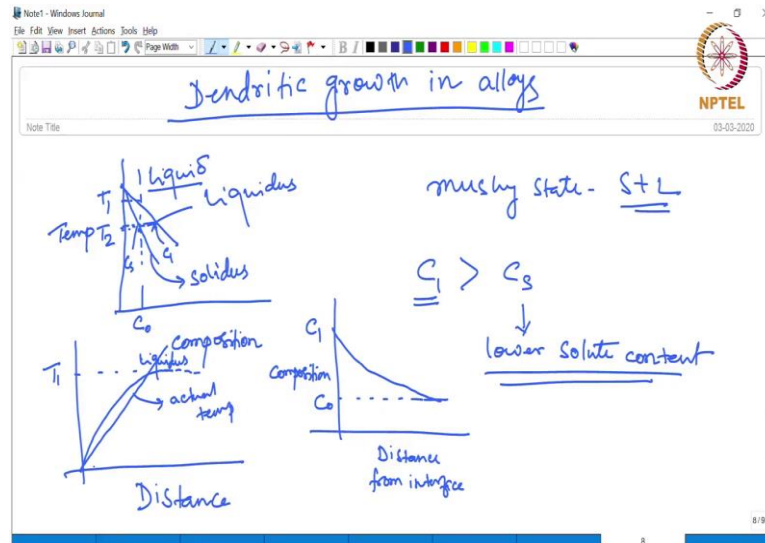 Note1 - Windows Journal
File Edit View Insert Actions Tools Help
Page Width
B I
Dendritic growth in alloys
NPTEL
Note Title
03-03-2020
Liquid
Liquidus
T1
Temp T2
Cs
Cl
solidus
C0
mushy state - S+L
Cl > Cs
lower solute content
composition
Liquidus
T1
actual temp
Distance
Cl
Composition
C0
Distance
from interface
8/9
8